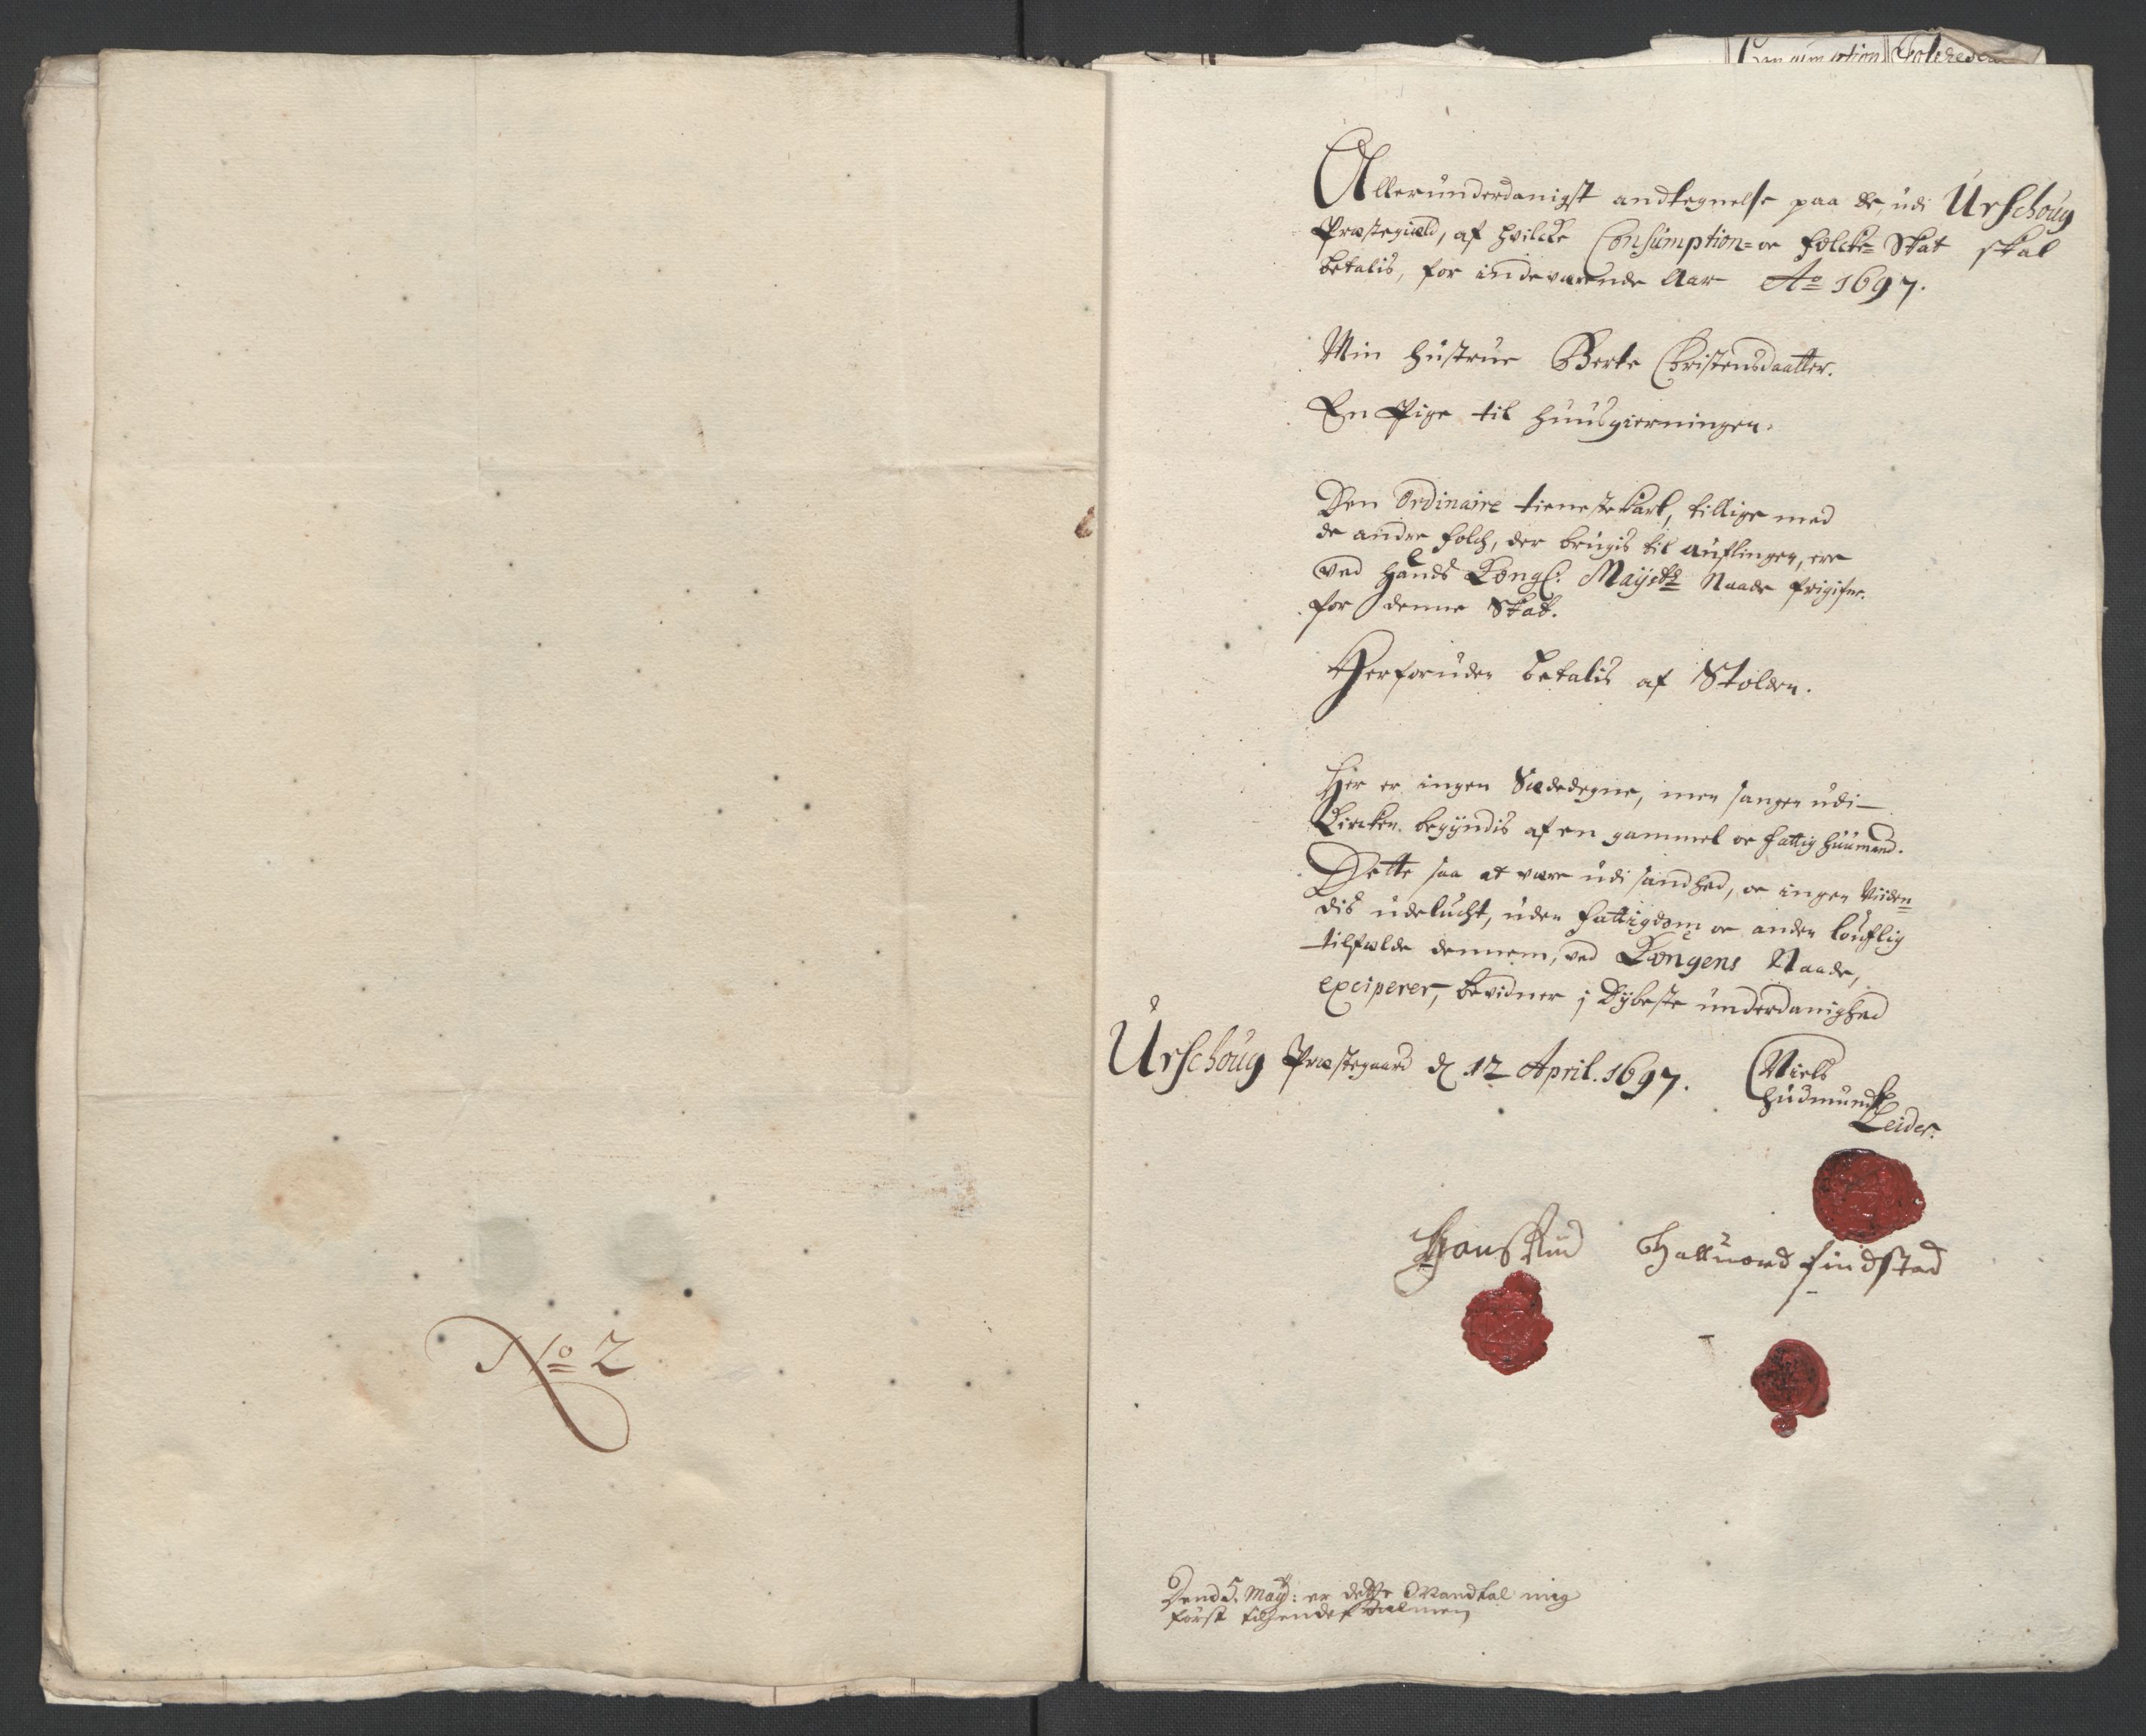 No 2
Consumption Folcheds
Allerunderdanigst andtegnelse paa de, udi Urschoug
Præstegield, af hvilcke Consumption= oc Folcke= Skat skal
betalis, for indeværende Aar Ao 1697.
Min Hustrue Berte Christensdaatter.
En Pige til Huusgierningen.
Den Ordinaire tieneste Karl, tillige med
de andre Folch, der brugis til auflingen, ere
ved Hands Kongl. Mayestz Naade frigifne
for denne Skat.
Herforuden betalis af Stolden.
Her er ingen Sædedegne, men sangen udi
Kircken begyndis af en gammel oc fattig Huusmand.
Dette saa at være udi sandhed, oc ingen viiden=
dis udelucht, uden fattigdom oc anden louflig
tilfælde dennem, ved Kongens Naade,
exciperer, bevidner j Dybeste underdanighed
Urschoug Præstegaard d 12 April. 1697.
Niels
Gudmunds
Leider.
Hans Rud Hattuord Findstad
Dend 5. May: er dette Mandtal mig
först tilsendt